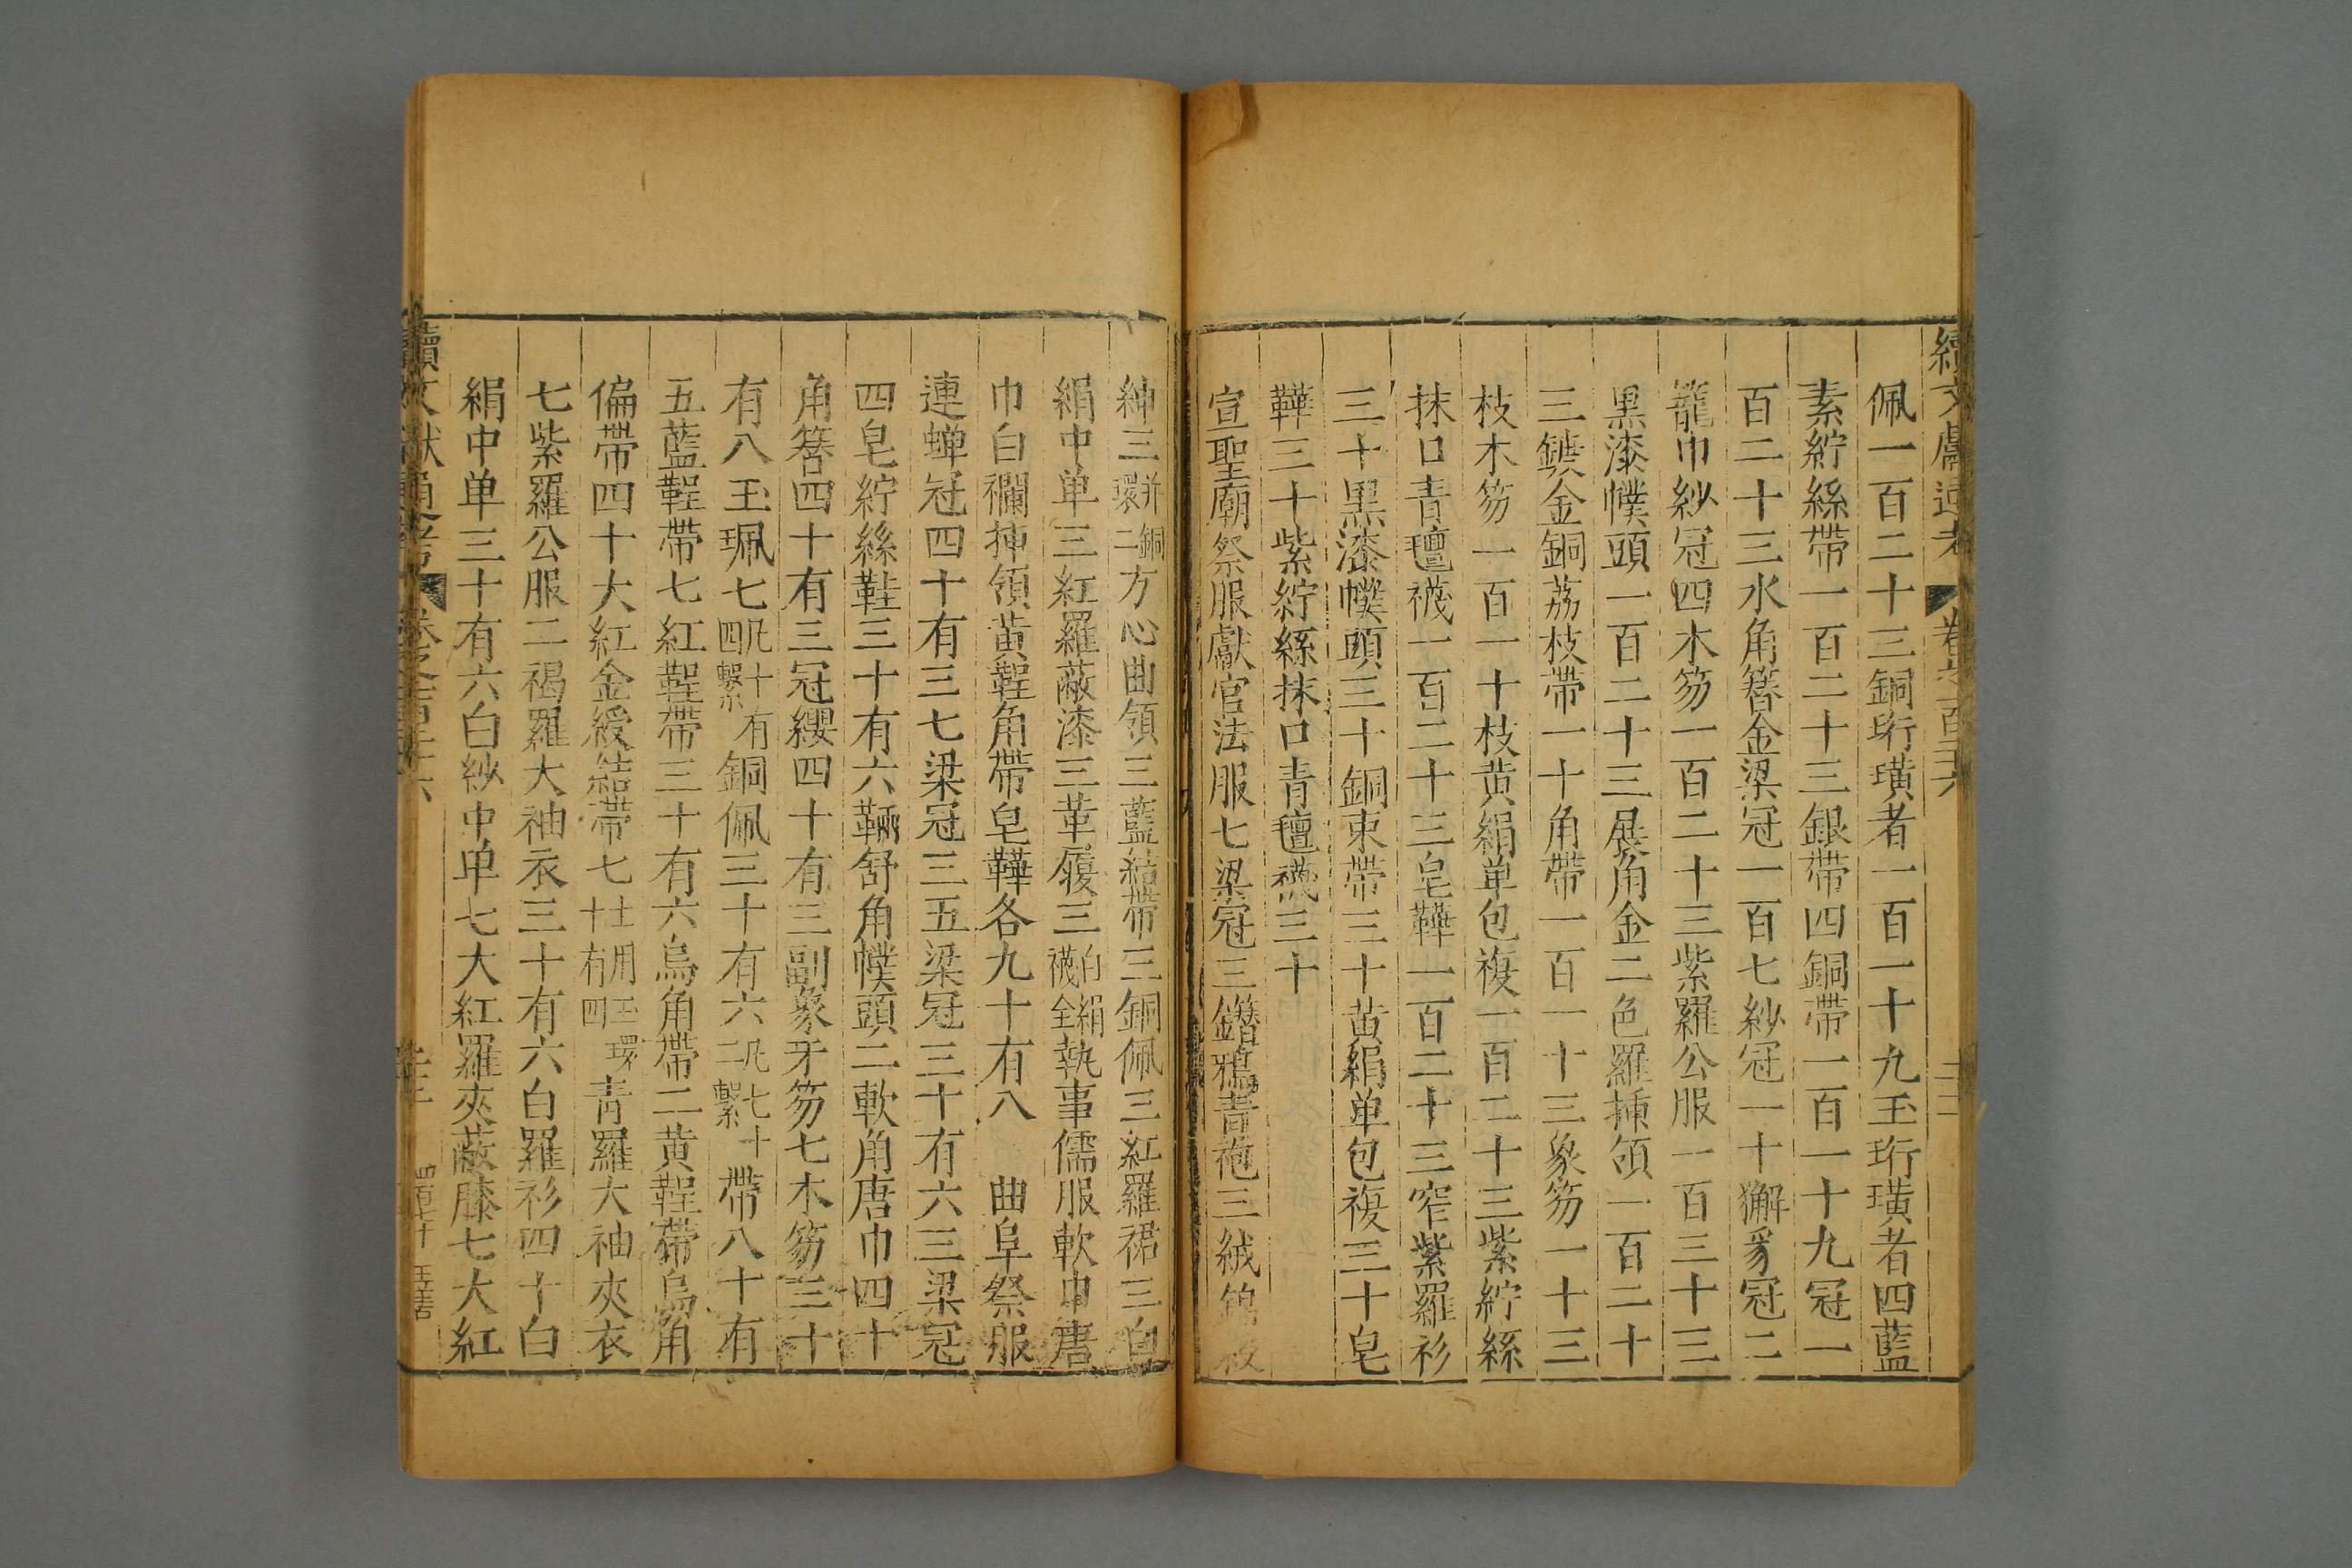 佩一百二十三銅珩璜者一百一十九玉珩璜者四藍
素紵絲帶一百二十三銀帶四銅帶一百一十九冠一
百二十三水角簪金梁冠一百七紗冠一十獬豸冠二
籠巾紗冠四木笏一百二十三紫羅公服一百三十三
黑漆幞頭一百二十三展角金二色羅揷領一百二十
三鍍金銅荔枝帶一十角帶一百一十三象笏一十三
枝木笏一百一十枝黄絹单包複一百二十三紫紵絲
抹口青氊襪一百二十三皂鞾一百二十三窄紫羅衫
三十黑漆幞頭三十銅束帶三十黄絹单包複三十皂
鞾三十紫紵絲抹口青氊襪三十
宣聖廟祭服獻官法服七梁冠三鐕鴉青袍三絨錦綬
紳三并銅環二方心曲領三藍結帶三銅佩三紅羅裙三白
絹中单三紅羅蔽漆三革履三白絹襪全執事儒服軟巾唐
巾白襴揷領黄鞓角帶皂鞾各九十有八 曲阜祭服
連蟬冠四十有三七梁冠三五梁冠三十有六三梁冠
四皂紵絲鞋三十有六輛舒角幞頭二軟角唐巾四十
角簪四十有三冠纓四十有三副象牙笏七木笏三十
有八玉珮七凡十有四繋銅佩三十有六凡七十二繋帶八十有
五藍鞓帶七紅鞓帶三十有六烏角帶二黄鞓帶烏角
偏帶四十大紅金綬結帶七上用玉環十有四青羅大袖夾衣
七紫羅公服二褐羅大袖衣三十有六白羅衫四十白
絹中单三十有六白紗中单七大紅羅夾蔽膝七大紅